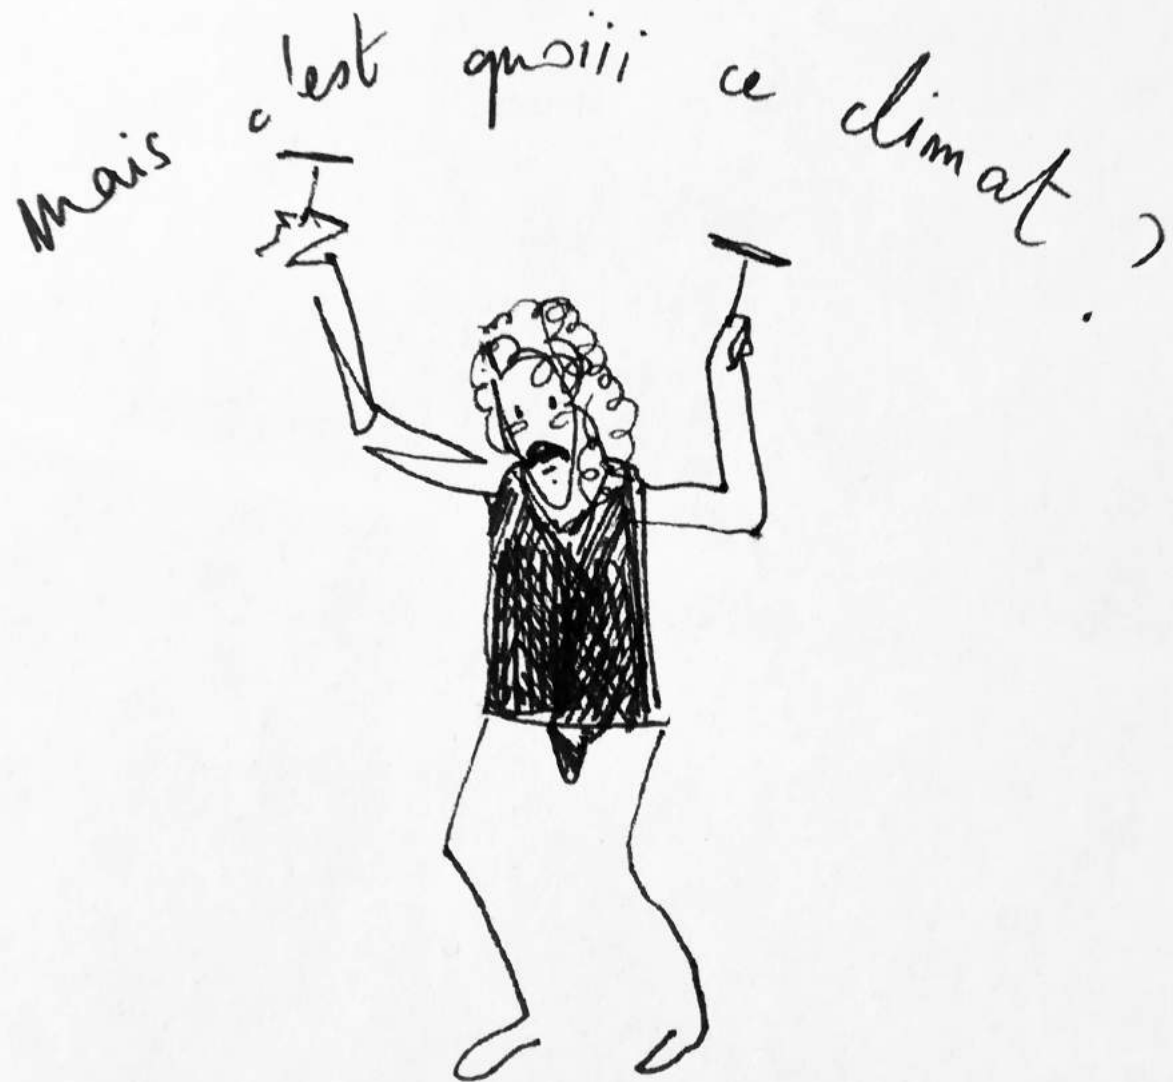 mais c'est quoiii ce climat ?